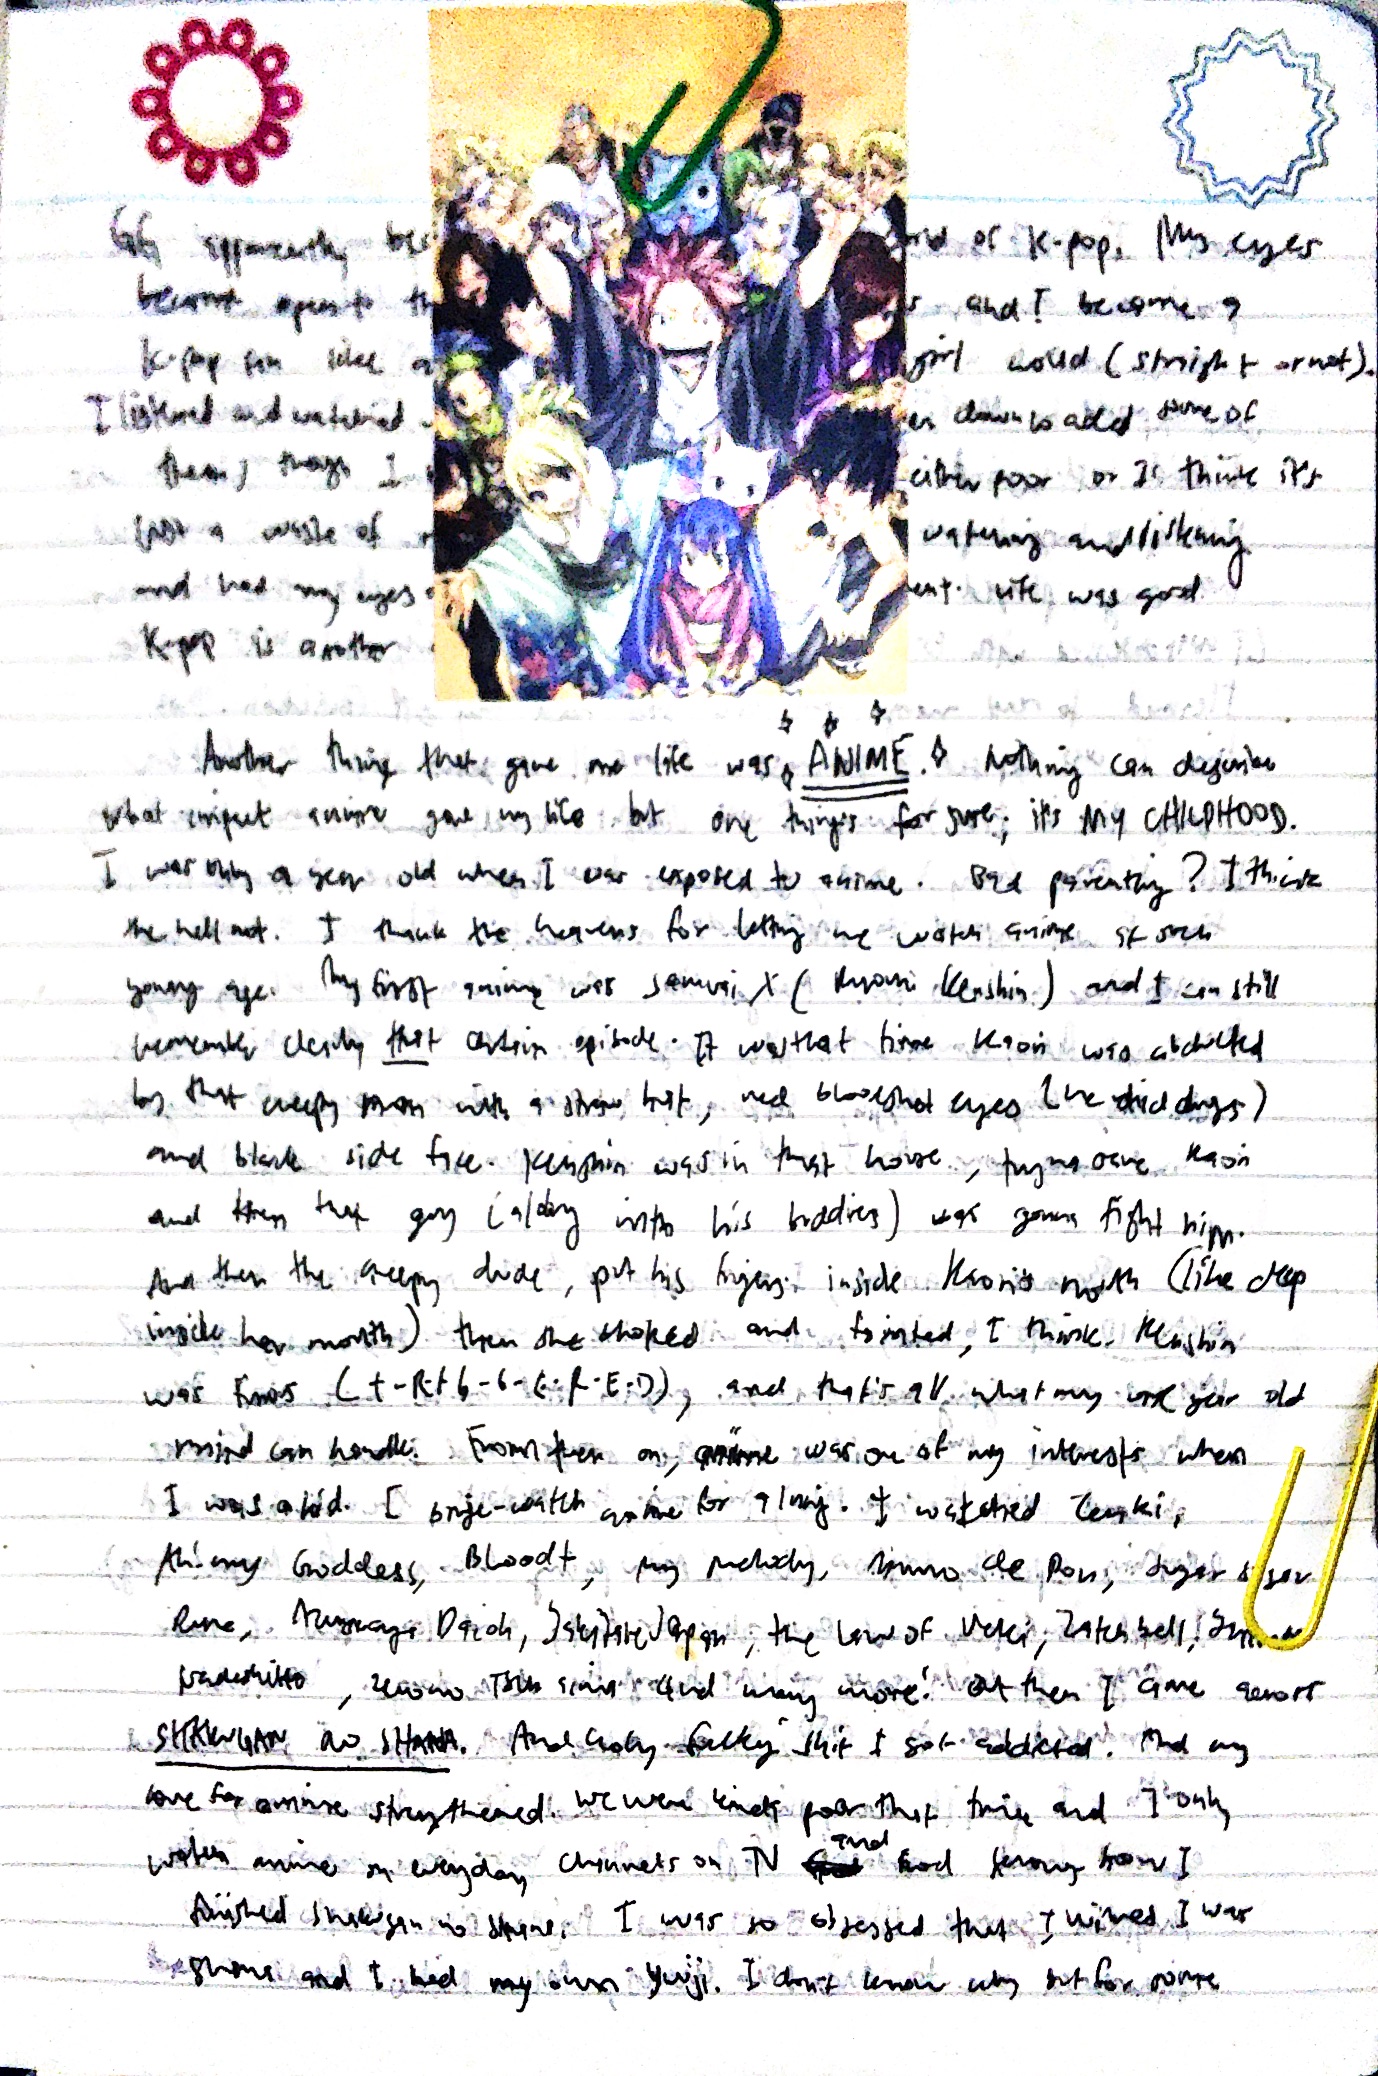 GG apparently of K-pop. My eyes
became open to th and I became a
K-pop fan like a girl would (straight or not).
I listened and watched downloaded some of
them, though I either poor or I think it's
just a waste of watching and listening
and had my eyes life was good
K-pop is another
Another thing that gave me life was ANIME. Nothing can describe
what impact anime gave my life but one things for sure; it's MY CHILDHOOD.
I was only a year old when I was exposed to anime. Bad parenting? I think
the hell not. I thank the heavens for letting me watch anime at such
young age. My first anime was Samurai X ( Kenshin) and I can still
remember clearly that certain episode. It was that time Kaori was abducted
by that creepy man with a straw hat, red bloodshot eyes (he did drugs)
and black side face. Kenshin was in that house, tryna save Kaori
and then that guy ( with his buddies) was gonna fight him.
And then the creepy dude, put his fingers inside Kaori's mouth (like deep
inside her mouth) then she choked and fainted, I think. Kenshin
was furious (T-R-I-G-G-E-R-E-D), and that's all what my one year old
mind can handle. From then on, anime was one of my interests when
I was a kid. I binge-watch anime for a living. I watched Zenki,
Ah! my Goddess, Blood+, My Melody, de Pon, Sugar Sugar
Rune, Azumanga Daioh, Yakitate Japan, the Law of Ueki, Zatchbell,
Nadeshiko, and many more! But then I came across
SHAKUGAN no SHANA. And holy fucking shit I got addicted. And my
love for anime strengthened. We were kinda poor that time and I only
watch anime on everyday channels on TV and how I
finished Shakugan no Shana. I was so obsessed that I wished I was
Shana and I had my own Yuuji. I don't know why but for some